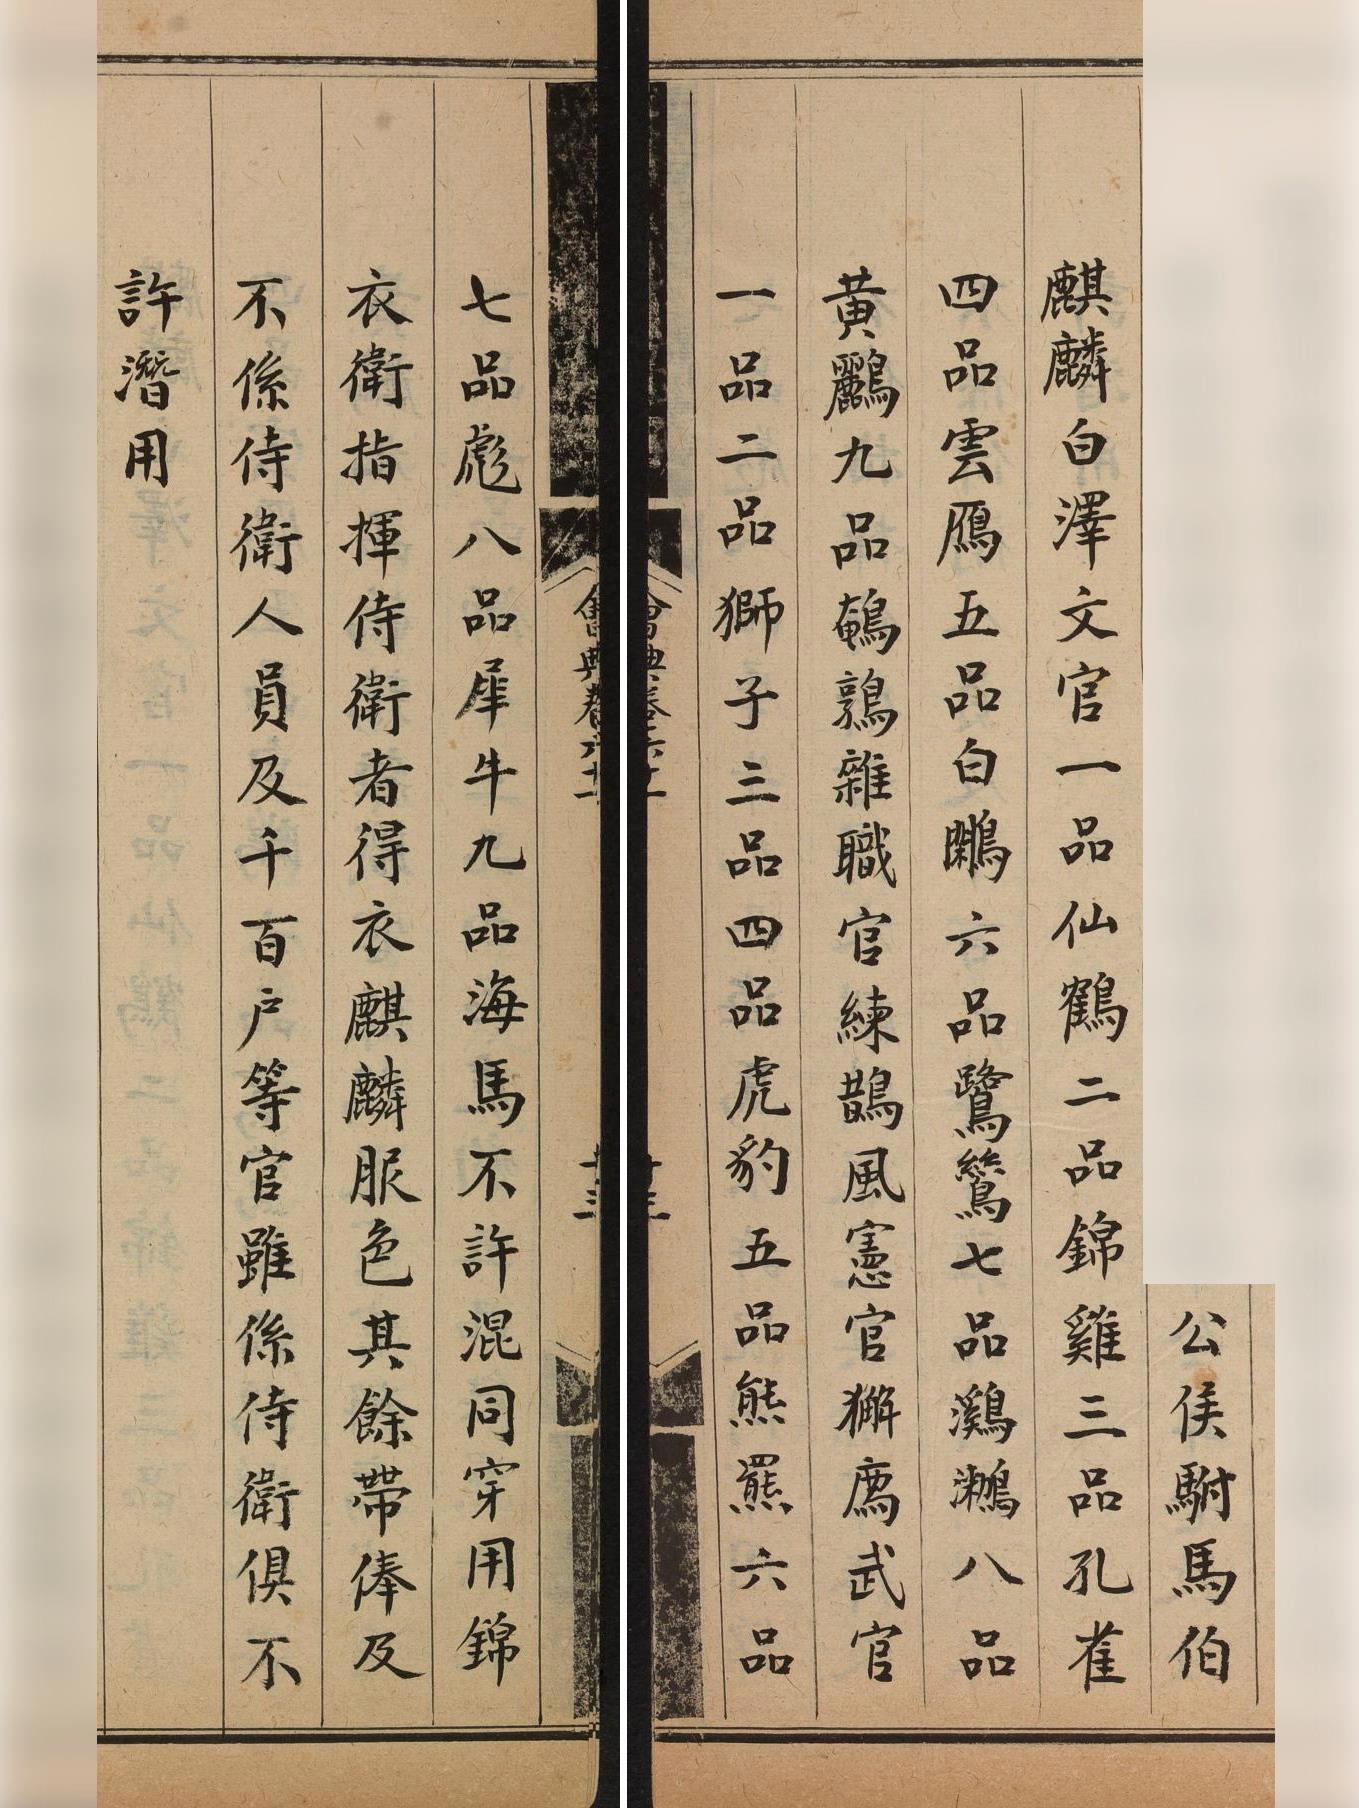 公侯駙馬伯
麒麟白澤文官一品仙鶴二品錦雞三品孔雀
四品雲鴈五品白鷴六品鷺鷥七品鸂鶒八品
黃鸝九品鵪鶉雜職官練鵲風憲官獬廌武官
一品二品獅子三品四品虎豹五品熊羆六品
會典卷六十一
七品彪八品犀牛九品海馬不許混同穿用錦
衣衛指揮侍衛者得衣麒麟服色其餘帶俸及
不係侍衛人員及千百戶等官雖係侍衛俱不
許潛用